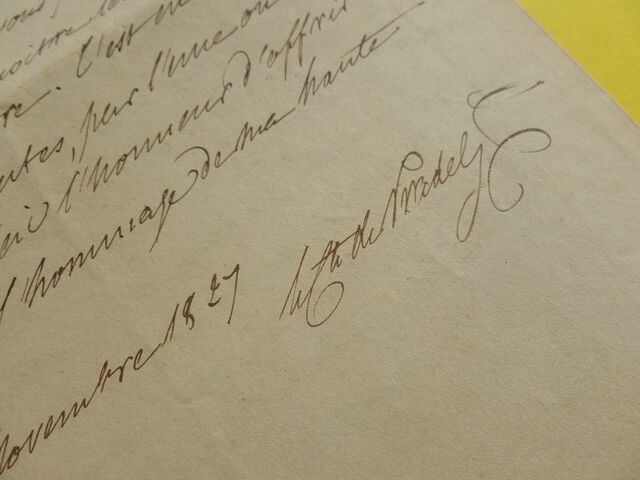 vous,
C'est en
ntes, pour l'une ou
l'honneur d'offrir
l'hommage de ma haute
Novembre 1827 le Cte de Pradel